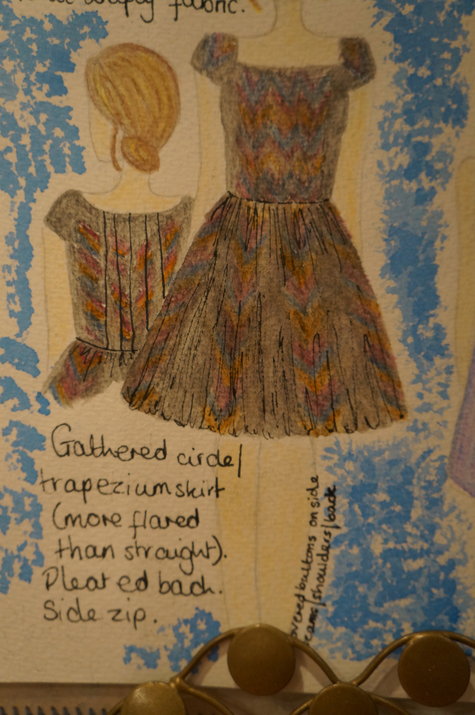 drapey fabric.
Gathered circle/
trapezium skirt
(more flared
than straight).
Pleated back.
Side zip.
covered buttons on side
seams/shoulders/back